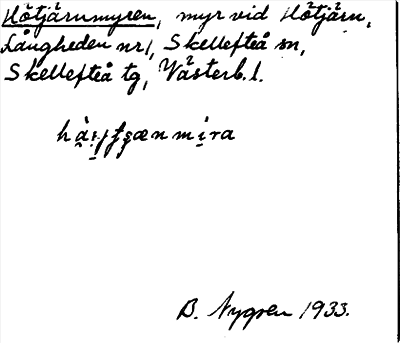 Hötjärnmyren, myr vid Hötjärn,
Långheden nr 1, Skellefteå sn,
Skellefteå tg, Västerb. l.
B. Nygren 1933.